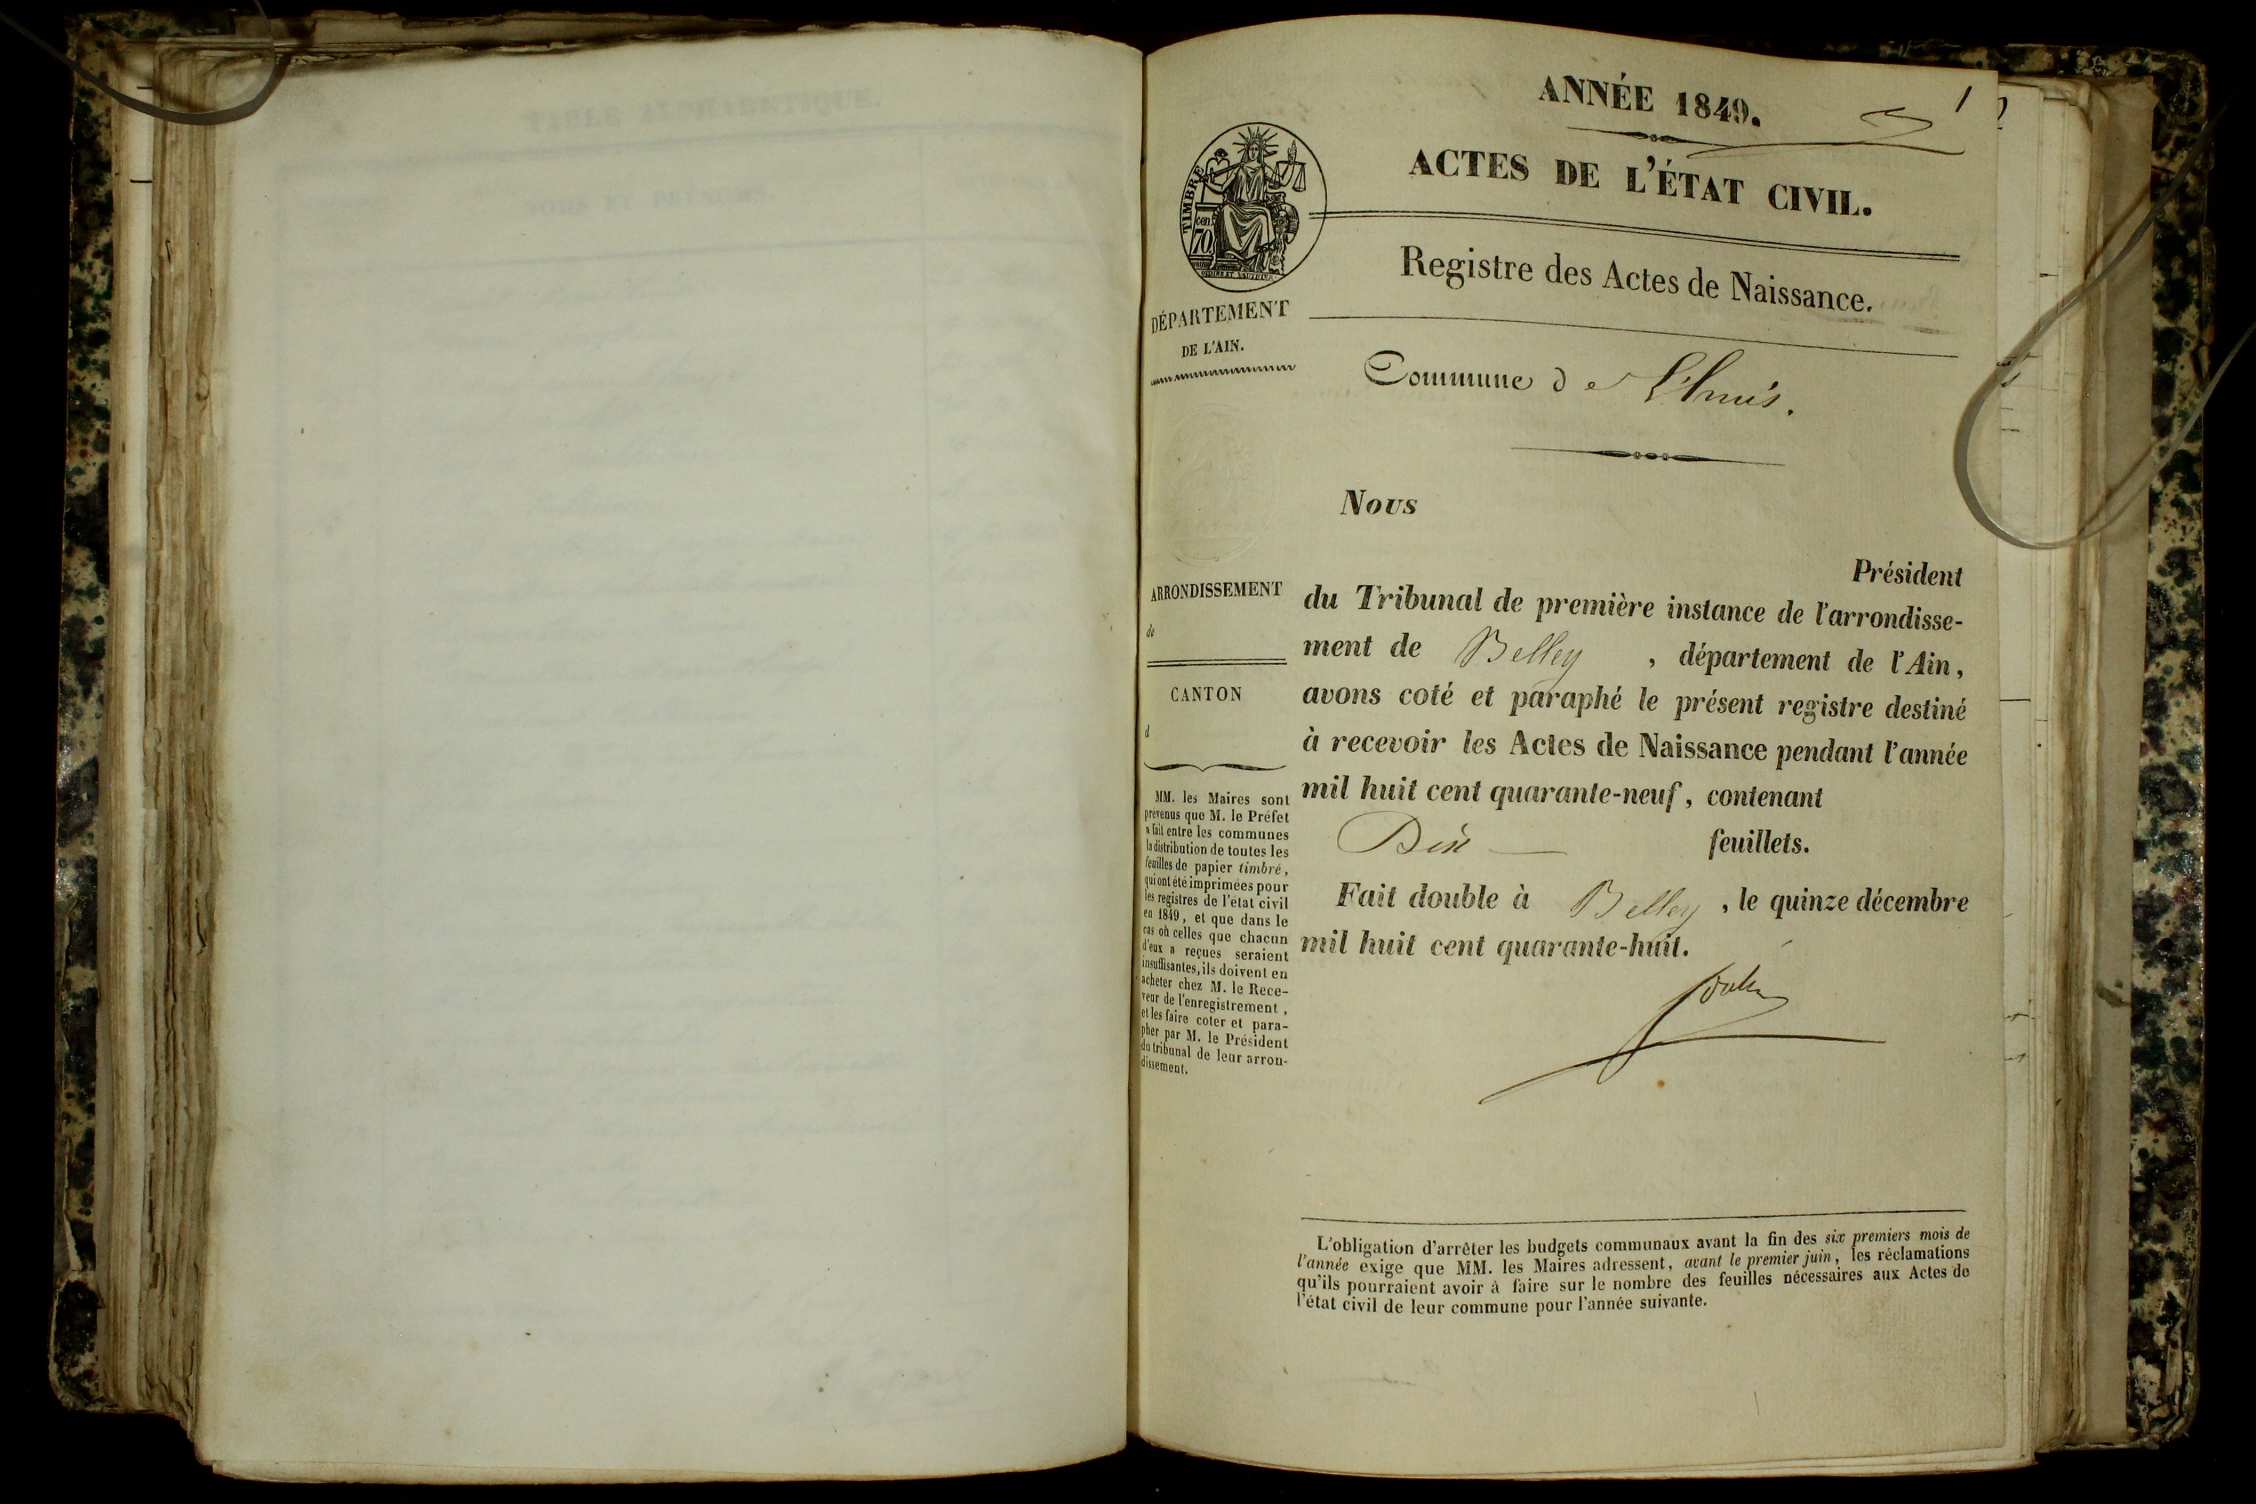 ANNÉE 1849.
1
ACTES DE L'ÉTAT CIVIL.
TIMBRE
cen.
70
Registre des Actes de Naissance.
DÉPARTEMENT
DE L'AIN.
Commune de Lhuis.
Nous
Président
du Tribunal de première instance de l'arrondisse-
ment de Belley, département de l'Ain,
avons coté et paraphé le présent registre destiné
à recevoir les Actes de Naissance pendant l'année
mil huit cent quarante-neuf, contenant
Dix feuillets.
Fait double à Belley, le quinze décembre
mil huit cent quarante-huit.
ARRONDISSEMENT
de
CANTON
d
MM. les Maires sont
prévenus que M. le Préfet
a fait entre les communes
la distribution de toutes les
feuilles de papier timbré,
qui ont été imprimées pour
les registres de l'état civil
en 1849, et que dans le
cas où celles que chacun
d'eux a reçues seraient
insuffisantes, ils doivent en
acheter chez M. le Rece-
veur de l'enregistrement,
et les faire coter et para-
pher par M. le Président
du tribunal de leur arron-
dissement.
L'obligation d'arrêter les budgets communaux avant la fin des six premiers mois de
l'année exige que MM. les Maires adressent, avant le premier juin, les réclamations
qu'ils pourraient avoir à faire sur le nombre des feuilles nécessaires aux Actes de
l'état civil de leur commune pour l'année suivante.